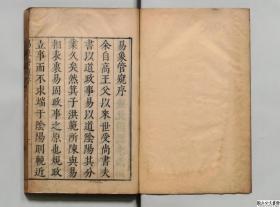 易象管窺序
余自高王父以來世受尚書夫
書以道政事易以道陰陽其分
業久矣然箕子洪範所陳與易
相表裏易固政事之原也規政
立事而不求端于陰陽則範近